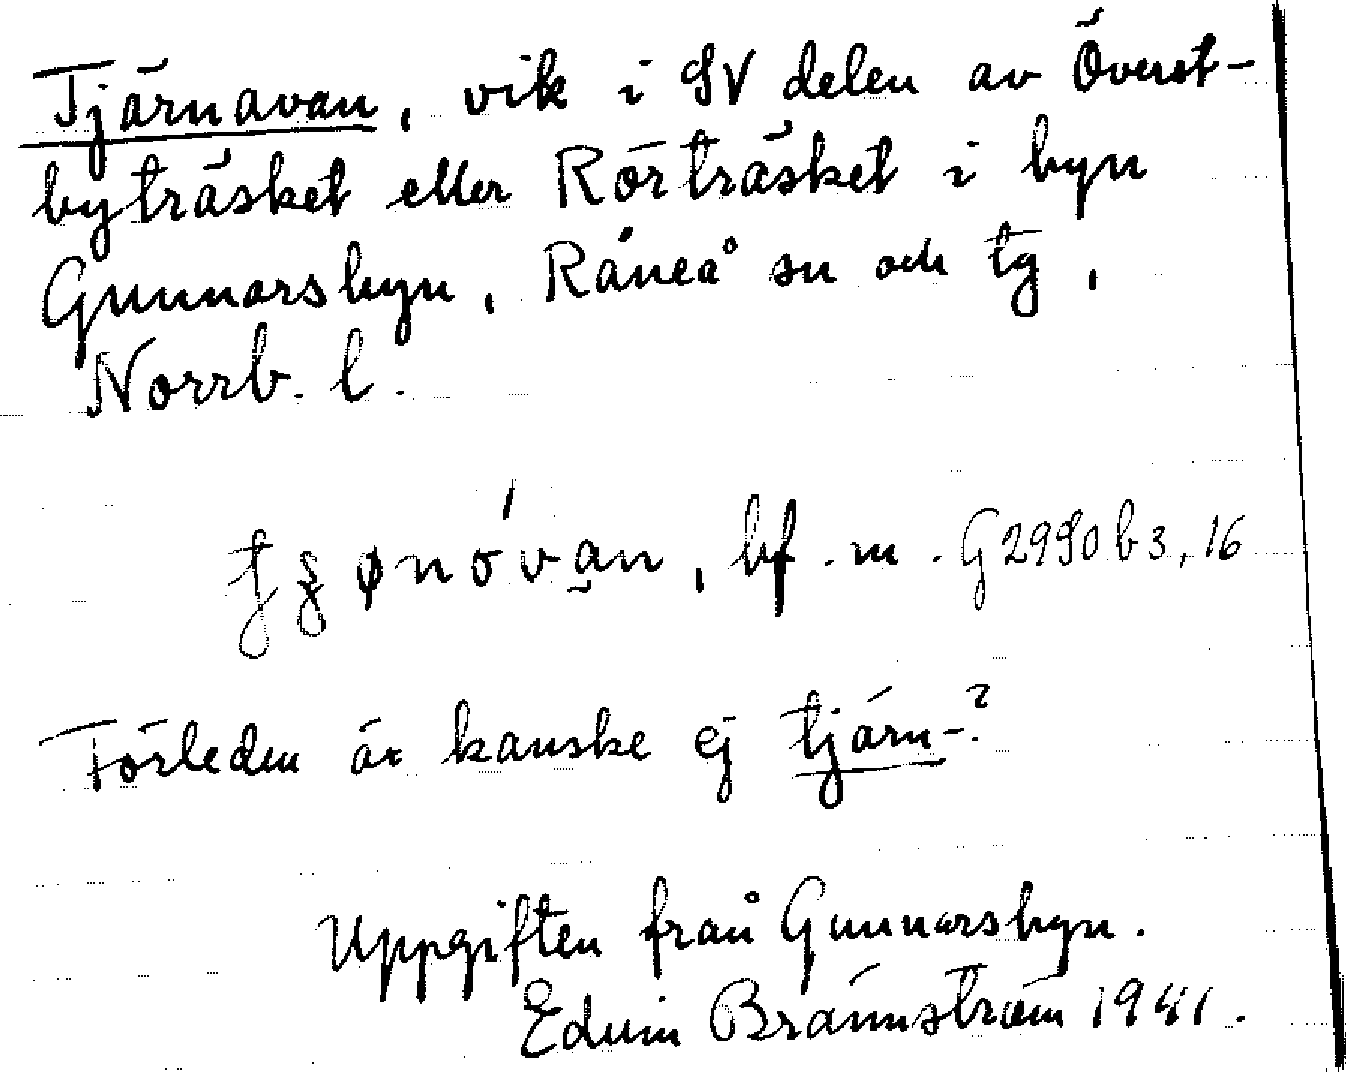 Tjärnavan, vik i SV delen av Överst-
byträsket eller Rörträsket i byn
Gunnarsbyn, Råneå sn och tg,
Norrb. l.
bf. m. G2990b3, 16
Förleden är kanske ej tjärn-?
Uppgiften från Gunnarsbyn.
Edvin Brännström 1941.